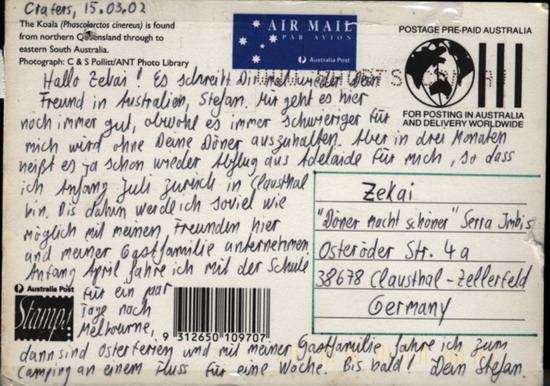 Crafers, 15.03.02
The Koala (Phascolarctos cinereus) is found
from northern Queensland through to
eastern South Australia.
Photograph: C & S Pollitt/ANT Photo Library
AIR MAIL
PAR AVION
Australia Post
POSTAGE PRE-PAID AUSTRALIA
FOR POSTING IN AUSTRALIA
AND DELIVERY WORLDWIDE
Hallo Zekai! Es schreibt Dir mal wieder Dein
Freund in Australien, Stefan. Mir geht es hier
noch immer gut, obwohl es immer schwieriger für
mich wird ohne Deine Döner auszuhalten. Aber in drei Monaten
heißt es ja schon wieder Abflug aus Adelaide für mich, so dass
ich Anfang Juli zurück in Clausthal
bin. Bis dahin werde ich soviel wie
möglich mit meinen Freunden hier
und meiner Gastfamilie unternehmen.
Anfang April fahre ich mit der Schule
für ein par
Tage nach
Melbourne,
dann sind Osterferien und mit meiner Gastfamilie fahre ich zum
Camping an einem Fluss für eine Woche. Bis bald! Dein Stefan.
Zekai
"Döner macht schöner" Serra Imbis
Osteröder Str. 4a
38678 Clausthal-Zellerfeld
Germany
Australia Post
Stamp!
9 312650 109707